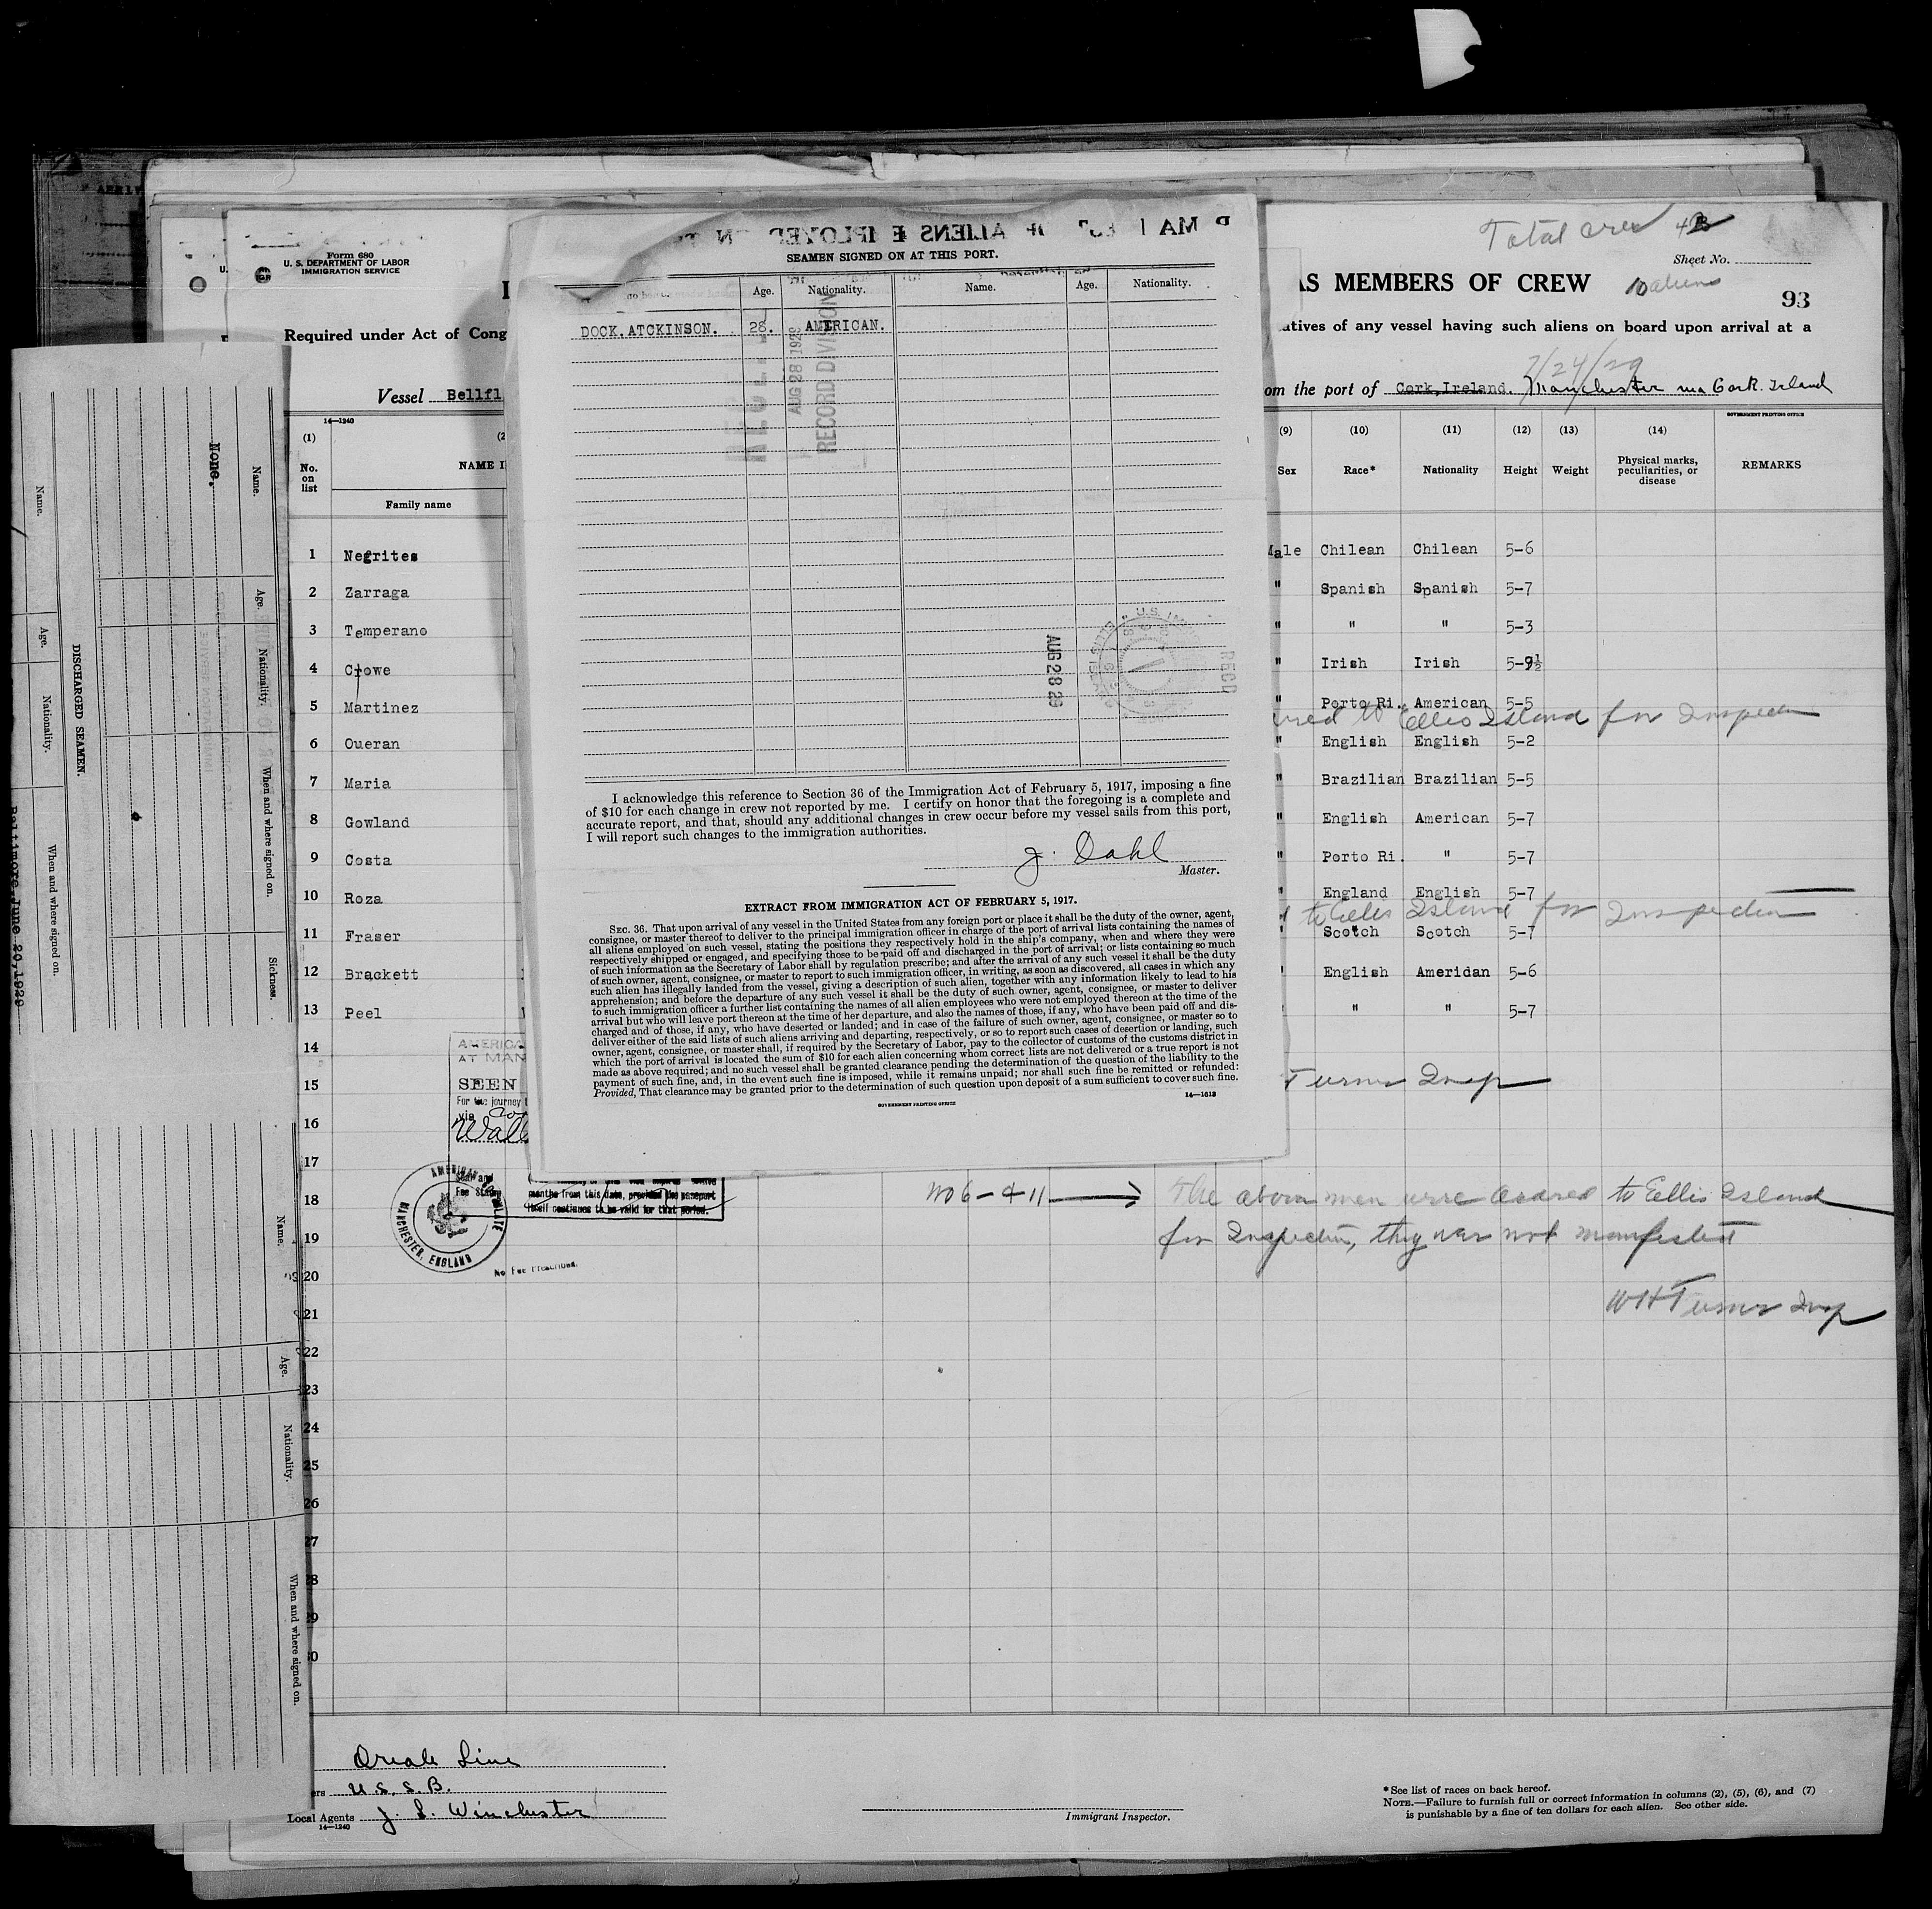 Total crew
Sheet No.
10 aliens
93
Form 680
U. S. DEPARTMENT OF LABOR
IMMIGRATION SERVICE
AS MEMBERS OF CREW
Required under Act of Cong
atives of any vessel having such aliens on board upon arrival at a
7/24/29
Vessel Bellfl
om the port of Cork, Ireland. Manchester via Cork. Ireland
14—1240
GOVERNMENT PRINTING OFFICE
(1) (2 (9) (10) (11) (12) (13) (14)
No. on list NAME I Sex Race* Nationality Height Weight Physical marks, peculiarities, or disease REMARKS
Family name
1 Negrites Male Chilean Chilean 5-6
2 Zarraga " Spanish Spanish 5-7
3 Temperano " " " 5-3
4 Crowe " Irish Irish 5-9½
5 Martinez " Porto Ri. American 5-5
to Ellis Island for Inspection
6 Oueran " English English 5-2
7 Maria " Brazilian Brazilian 5-5
8 Gowland " English American 5-7
9 Costa " Porto Ri. " 5-7
10 Roza " England English 5-7
to Ellis Island for Inspection
11 Fraser " Scotch Scotch 5-7
12 Brackett " English Ameridan 5-6
13 Peel " " 5-7
14
15
16
17
18
19
20
21
22
23
24
25
26
27
28
29
30
Turner Insp
AMERICA
AT MAN
SEEN
For the journey t
via
AMERICAN CONSULATE
MANCHESTER, ENGLAND
Seal and
Fee Stamp
months from this date, provided the passport
itself continues to be valid for that period.
No Fee Prescribed.
No 6 – & 11 → The above men were ordered to Ellis Island
for Inspection, they war not manifested
WH Turner Insp
Local Agents J. S. Winchester
U.S.S.B.
14—1240
Immigrant Inspector.
*See list of races on back hereof.
NOTE.—Failure to furnish full or correct information in columns (2), (5), (6), and (7)
is punishable by a fine of ten dollars for each alien. See other side.
SEAMEN SIGNED ON AT THIS PORT.
Age. Nationality. Name. Age. Nationality.
DOCK.ATCKINSON. 28. AMERICAN.
AUG 28 1929
RECORD DIVISION
AUG 28 29
RECD
I acknowledge this reference to Section 36 of the Immigration Act of February 5, 1917, imposing a fine
of $10 for each change in crew not reported by me. I certify on honor that the foregoing is a complete and
accurate report, and that, should any additional changes in crew occur before my vessel sails from this port,
I will report such changes to the immigration authorities.
J. Dahl
Master.
EXTRACT FROM IMMIGRATION ACT OF FEBRUARY 5, 1917.
SEC. 36. That upon arrival of any vessel in the United States from any foreign port or place it shall be the duty of the owner, agent,
consignee, or master thereof to deliver to the principal immigration officer in charge of the port of arrival lists containing the names of
all aliens employed on such vessel, stating the positions they respectively hold in the ship's company, when and where they were
respectively shipped or engaged, and specifying those to be paid off and discharged in the port of arrival; or lists containing so much
of such information as the Secretary of Labor shall by regulation prescribe; and after the arrival of any such vessel it shall be the duty
of such owner, agent, consignee, or master to report to such immigration officer, in writing, as soon as discovered, all cases in which any
such alien has illegally landed from the vessel, giving a description of such alien, together with any information likely to lead to his
apprehension; and before the departure of any such vessel it shall be the duty of such owner, agent, consignee, or master to deliver
to such immigration officer a further list containing the names of all alien employees who were not employed thereon at the time of the
arrival but who will leave port thereon at the time of her departure, and also the names of those, if any, who have been paid off and dis-
charged and of those, if any, who have deserted or landed; and in case of the failure of such owner, agent, consignee, or master so to
deliver either of the said lists of such aliens arriving and departing, respectively, or so to report such cases of desertion or landing, such
owner, agent, consignee, or master shall, if required by the Secretary of Labor, pay to the collector of customs of the customs district in
which the port of arrival is located the sum of $10 for each alien concerning whom correct lists are not delivered or a true report is not
made as above required; and no such vessel shall be granted clearance pending the determination of the question of the liability to the
payment of such fine, and, in the event such fine is imposed, while it remains unpaid; nor shall such fine be remitted or refunded:
Provided, That clearance may be granted prior to the determination of such question upon deposit of a sum sufficient to cover such fine.
14—1613
GOVERNMENT PRINTING OFFICE
Name. Age. Nationality. When and where signed on. Sickness.
None.
DISCHARGED SEAMEN.
Name. Age. Nationality. When and where signed on.
Baltimore, June 20, 1929
Name. Age. Nationality. When and where signed on.